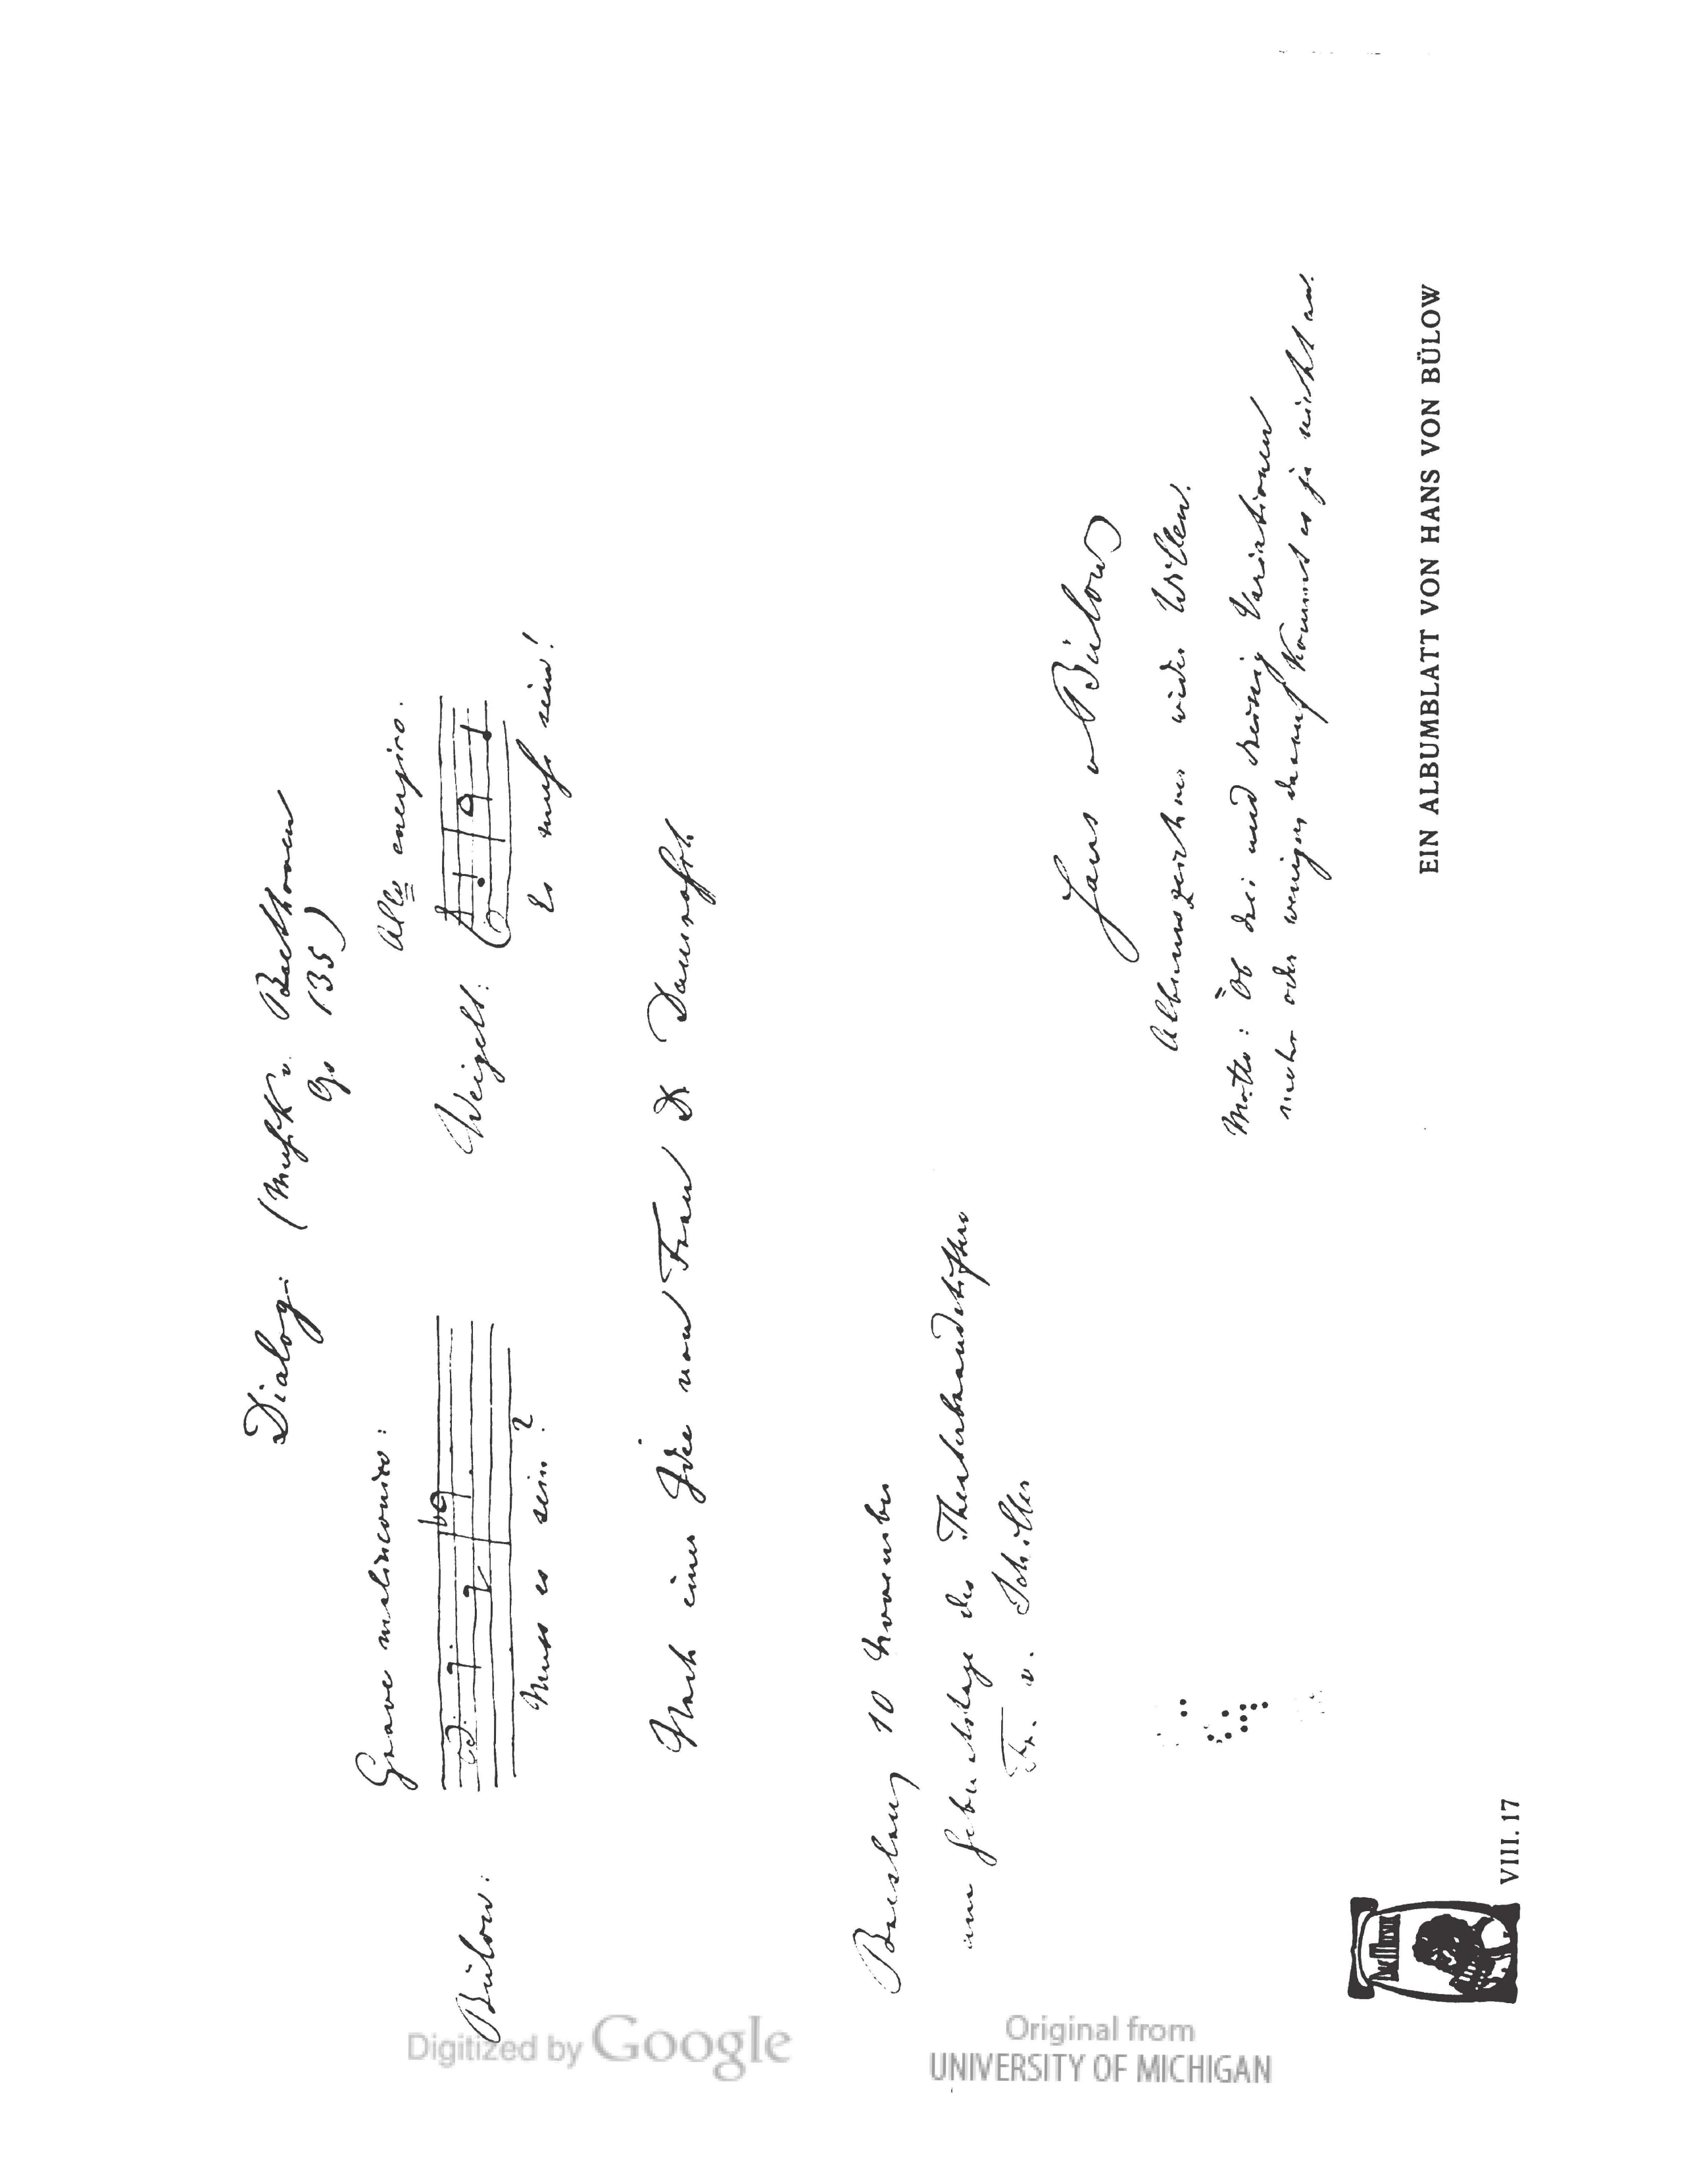 Dialog: (Musik v. Beethoven
Op 135)
Grave malinconico:
Allo energico.
Bülow:
Weigelt:
Muss es sein?
Es muß sein!
Nach einer Idee von Frau Dr Damrosch
Breslau 10 November
am Geburtstage des Theaterbrandstifters
Fr. v. Schiller
Hans v Bülow
Albumszeichner wider Willen.
Motto: Ob drei und dreissig Variationen
mehr oder weniger darauf kommt es ja nicht an.
EIN ALBUMBLATT VON HANS VON BÜLOW
DIE MUSIK
VIII. 17
Digitized by Google
Original from
UNIVERSITY OF MICHIGAN